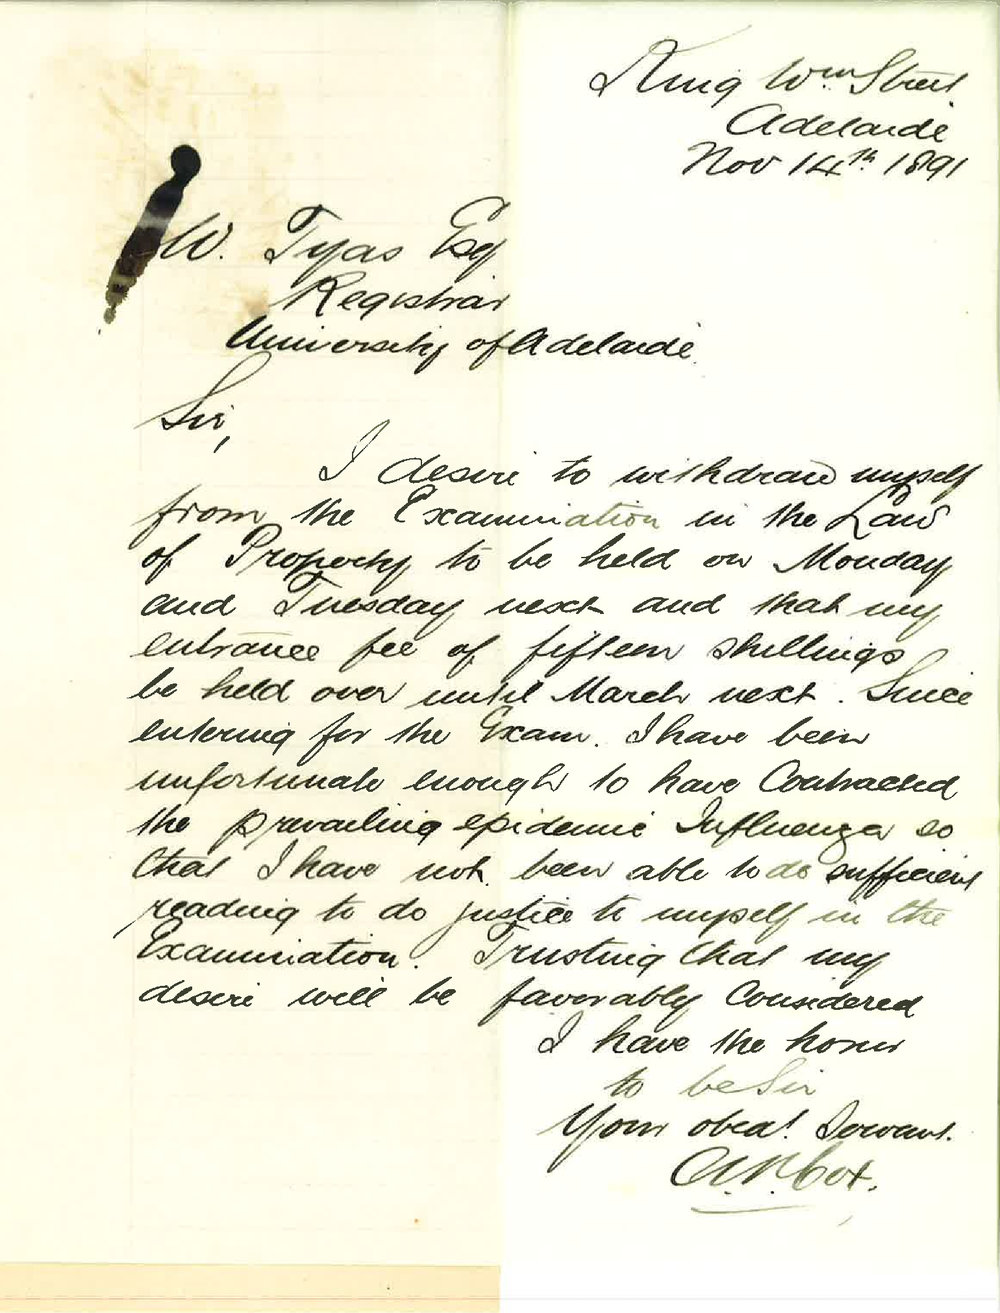 King Wm Street
Adelaide
Nov 14th 1891
W. Tyas Esq
Registrar
University of Adelaide.
Sir,
I desire to withdraw myself
from the Examination in the Law
of Property to be held on Monday
and Tuesday next and that my
entrance fee of fifteen shillings
be held over until March next. Since
entering for the Exam. I have been
unfortunate enough to have contracted
the prevailing epidemic Influenza so
that I have not been able to do sufficient
reading to do justice to myself in the
Examination. Trusting that my
desire will be favorably considered
I have the honor
to be Sir
Your obedt. Servant.
Cox.